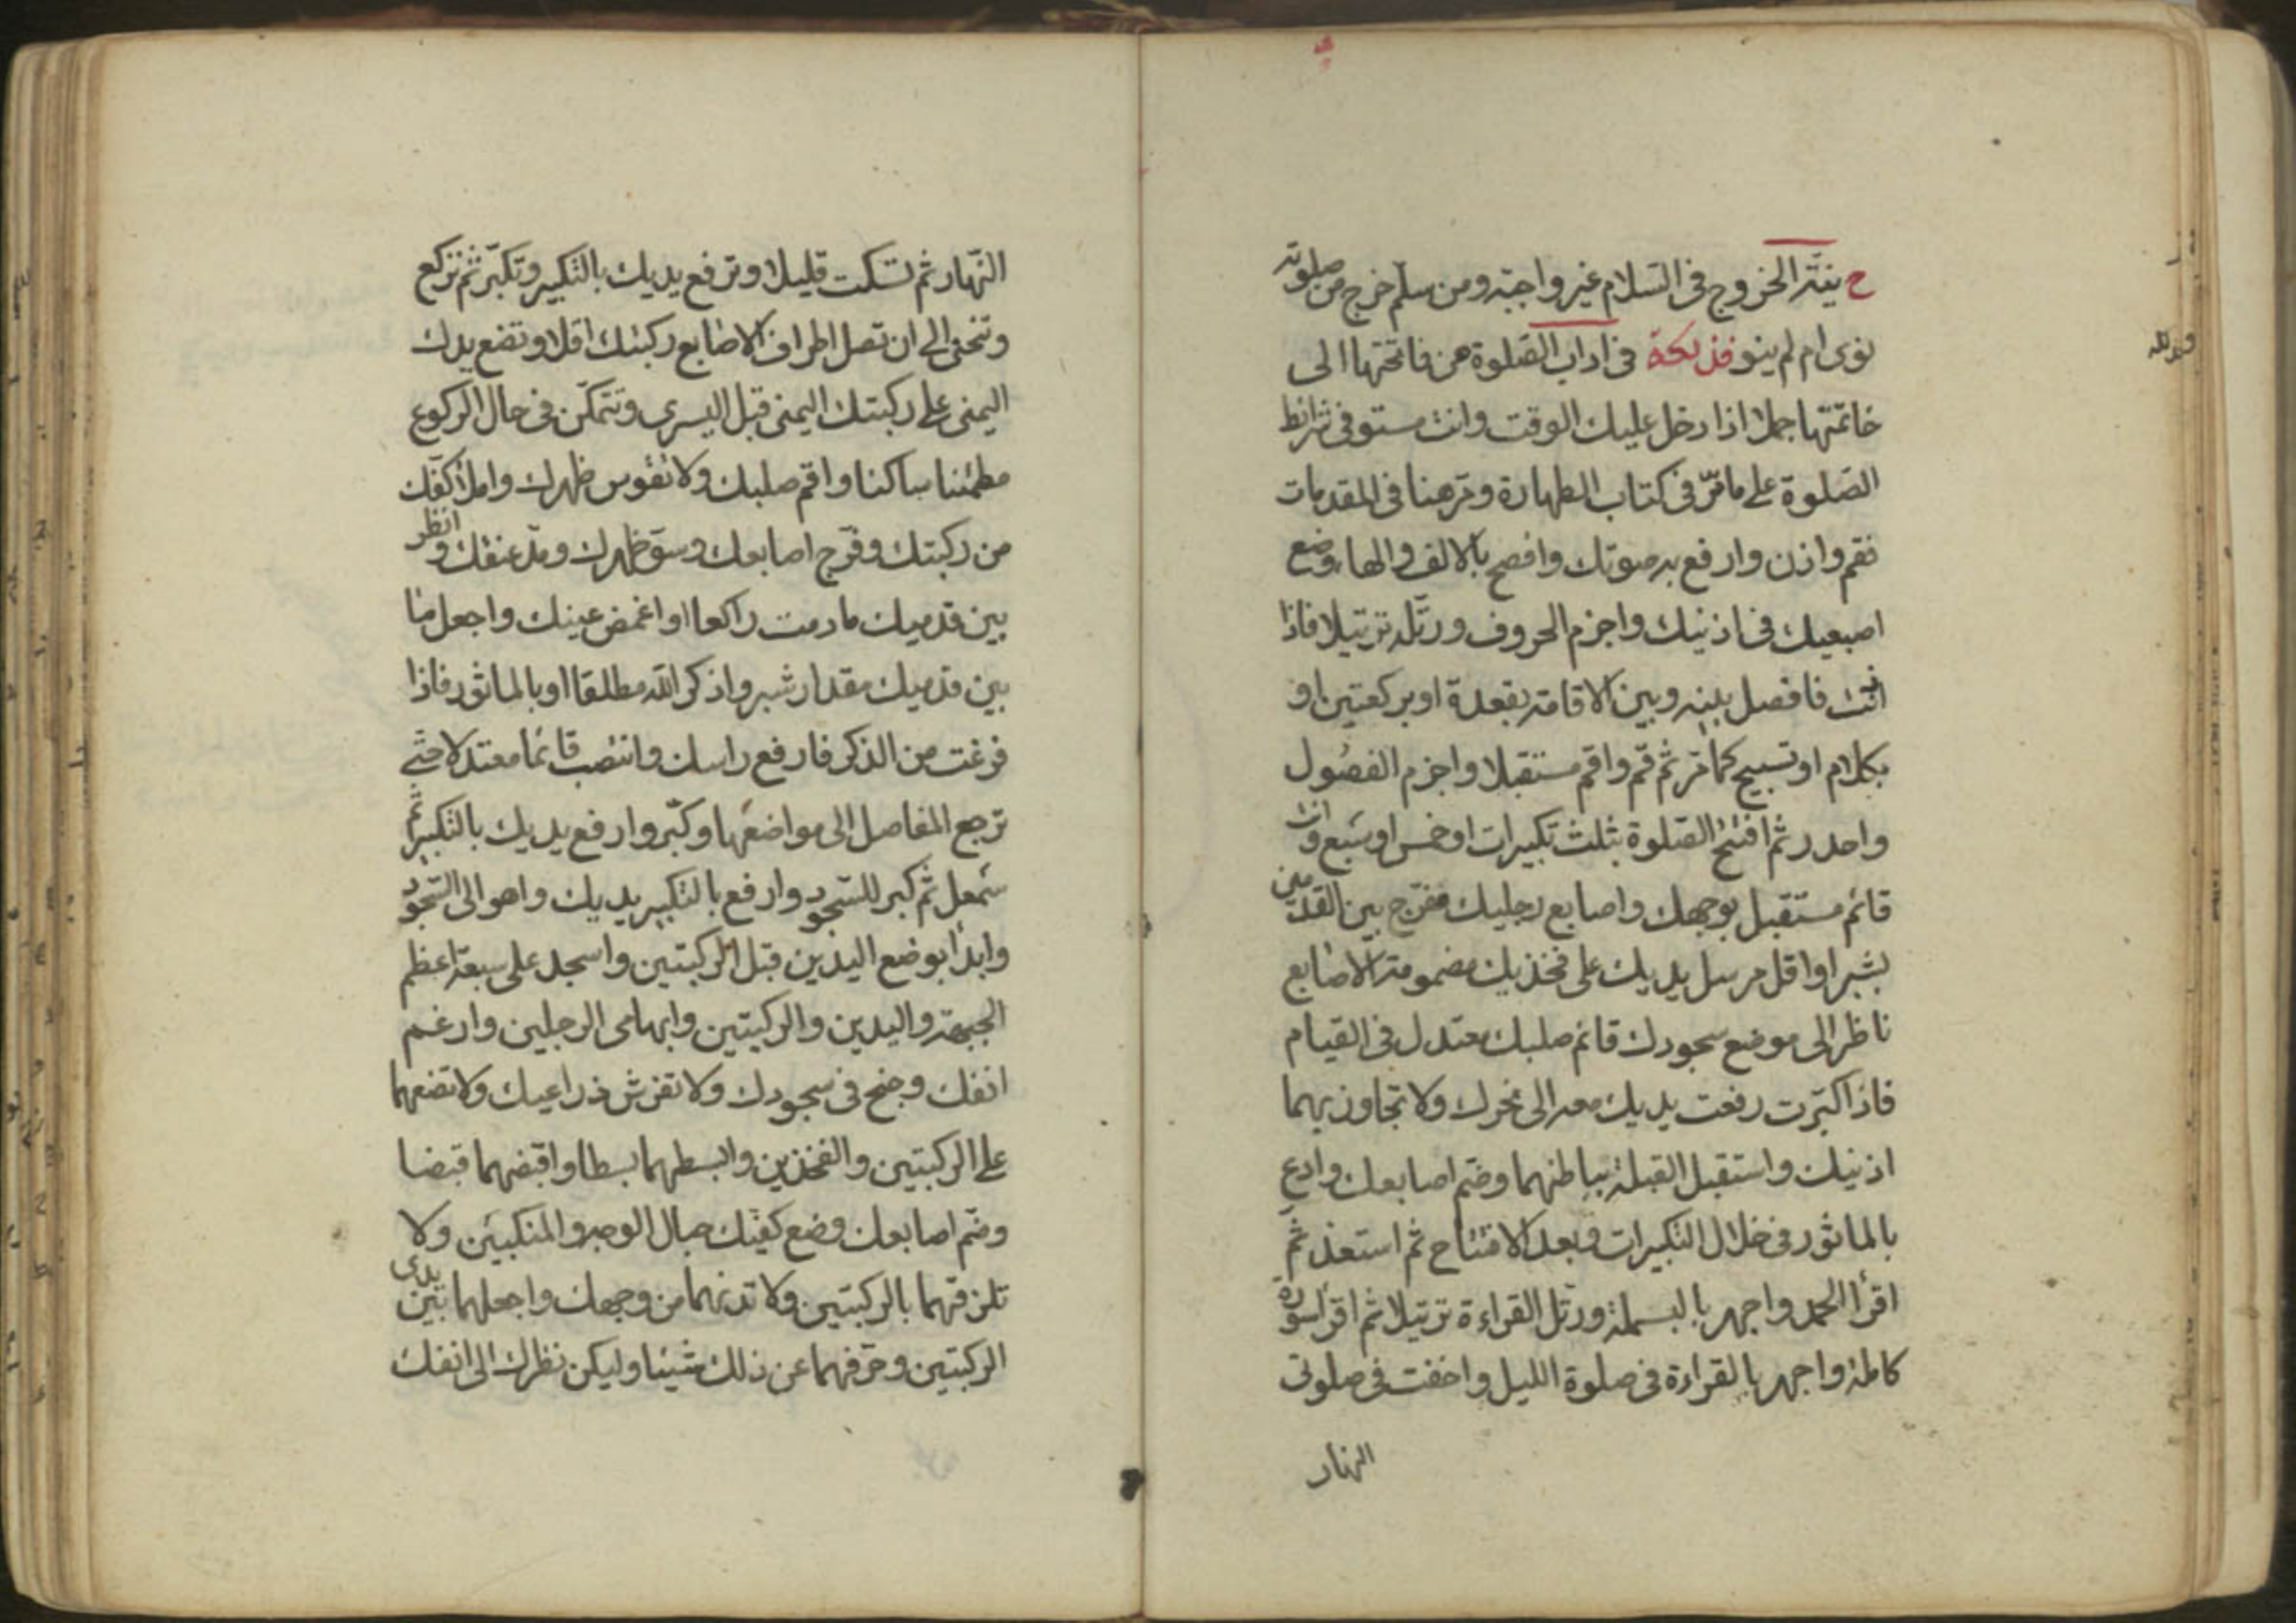 ح نيّة الخروج فى السّلام غير واجبة ومن سلّم خرج من صلوته
نوى ام لم ينو فذلكة فى اداب الصّلوة من فاتحتها الى
خاتمتها جملا اذا دخل عليك الوقت وانت مستوفى شرائط
الصّلوة على ما مرّ فى كتاب الطهارة ومر هنا فى المقدمات
فقم واذن وارفع به صوتك وافصح بالالف والهاء وضع
اصبعيك فى اذنيك واجزم الحروف ورتّله ترتيلا فاذا
فافصل بينه وبين الاقامة بقعدة او بركعتين او
بكلام او تسبيح كما مر ثم قم واقم مستقبلا واجزم الفصول
واحدر ثم افتتح الصّلوة بثلث تكبيرات او خمس او سبع وانت
قائم مستقبل بوجهك واصابع رجليك مفرّج بين القدمين
بشبر او اقل مرسل يديك على فخذيك مضمومة الاصابع
ناظر الى موضع سجودك قائم صلبك معتدل فى القيام
فاذا كبّرت رفعت يديك معه الى نحرك ولا تجاوز بهما
اذنيك واستقبل القبلة بباطنهما وضم اصابعك وادع
بالماثور فى خلال التكبيرات وبعد الافتتاح ثم استعذ ثم
اقرأ الحمد واجهر بالبسملة ورتل القراءة ترتيلا ثم اقرأ سورة
كاملة واجهر بالقراءة فى صلوة الليل واخفت فى صلوتى
النهار
النّهار ثم تسكت قليلا وترفع يديك بالتكبير وتكبّر ثم تركع
وتنحنى الى ان تصل اطراف الاصابع ركبتك اقلا وتضع يدك
اليمنى على ركبتك اليمنى قبل اليسرى وتتمكّن فى حال الركوع
مطمئنا ساكنا واقم صلبك ولا تقوس ظهرك واملأ كفّك
من ركبتك وفرّج اصابعك وسوّ ظهرك ومدّ عنقك وانظر
بين قدميك ما دمت راكعا او اغمض عينك واجعل ما
بين قدميك مقدار شبر واذكر الله مطلقا او بالماثور فاذا
فرغت من الذكر فارفع راسك وانتصب قائما معتدلا حتى
ترجع المفاصل الى مواضعها وكبّر وارفع يديك بالتكبير ثم
سمعل ثم كبر للسّجود وارفع بالتكبير يديك واهو الى السّجود
وابدأ بوضع اليدين قبل الركبتين واسجد على سبعة اعظم
الجبهة واليدين والركبتين وابهامى الرجلين وارغم
انفك وجنح فى سجودك ولا تفرش ذراعيك ولا تضعهما
على الركبتين والفخذين وابسطهما بسطا واقبضهما قبضا
وضم اصابعك وضع كفيك حيال الوجه والمنكبين ولا
تلزقهما بالركبتين ولا تدنهما من وجهك واجعلهما بين يدى
الركبتين وحرّفهما عن ذلك شيئا وليكن نظرك الى انفك